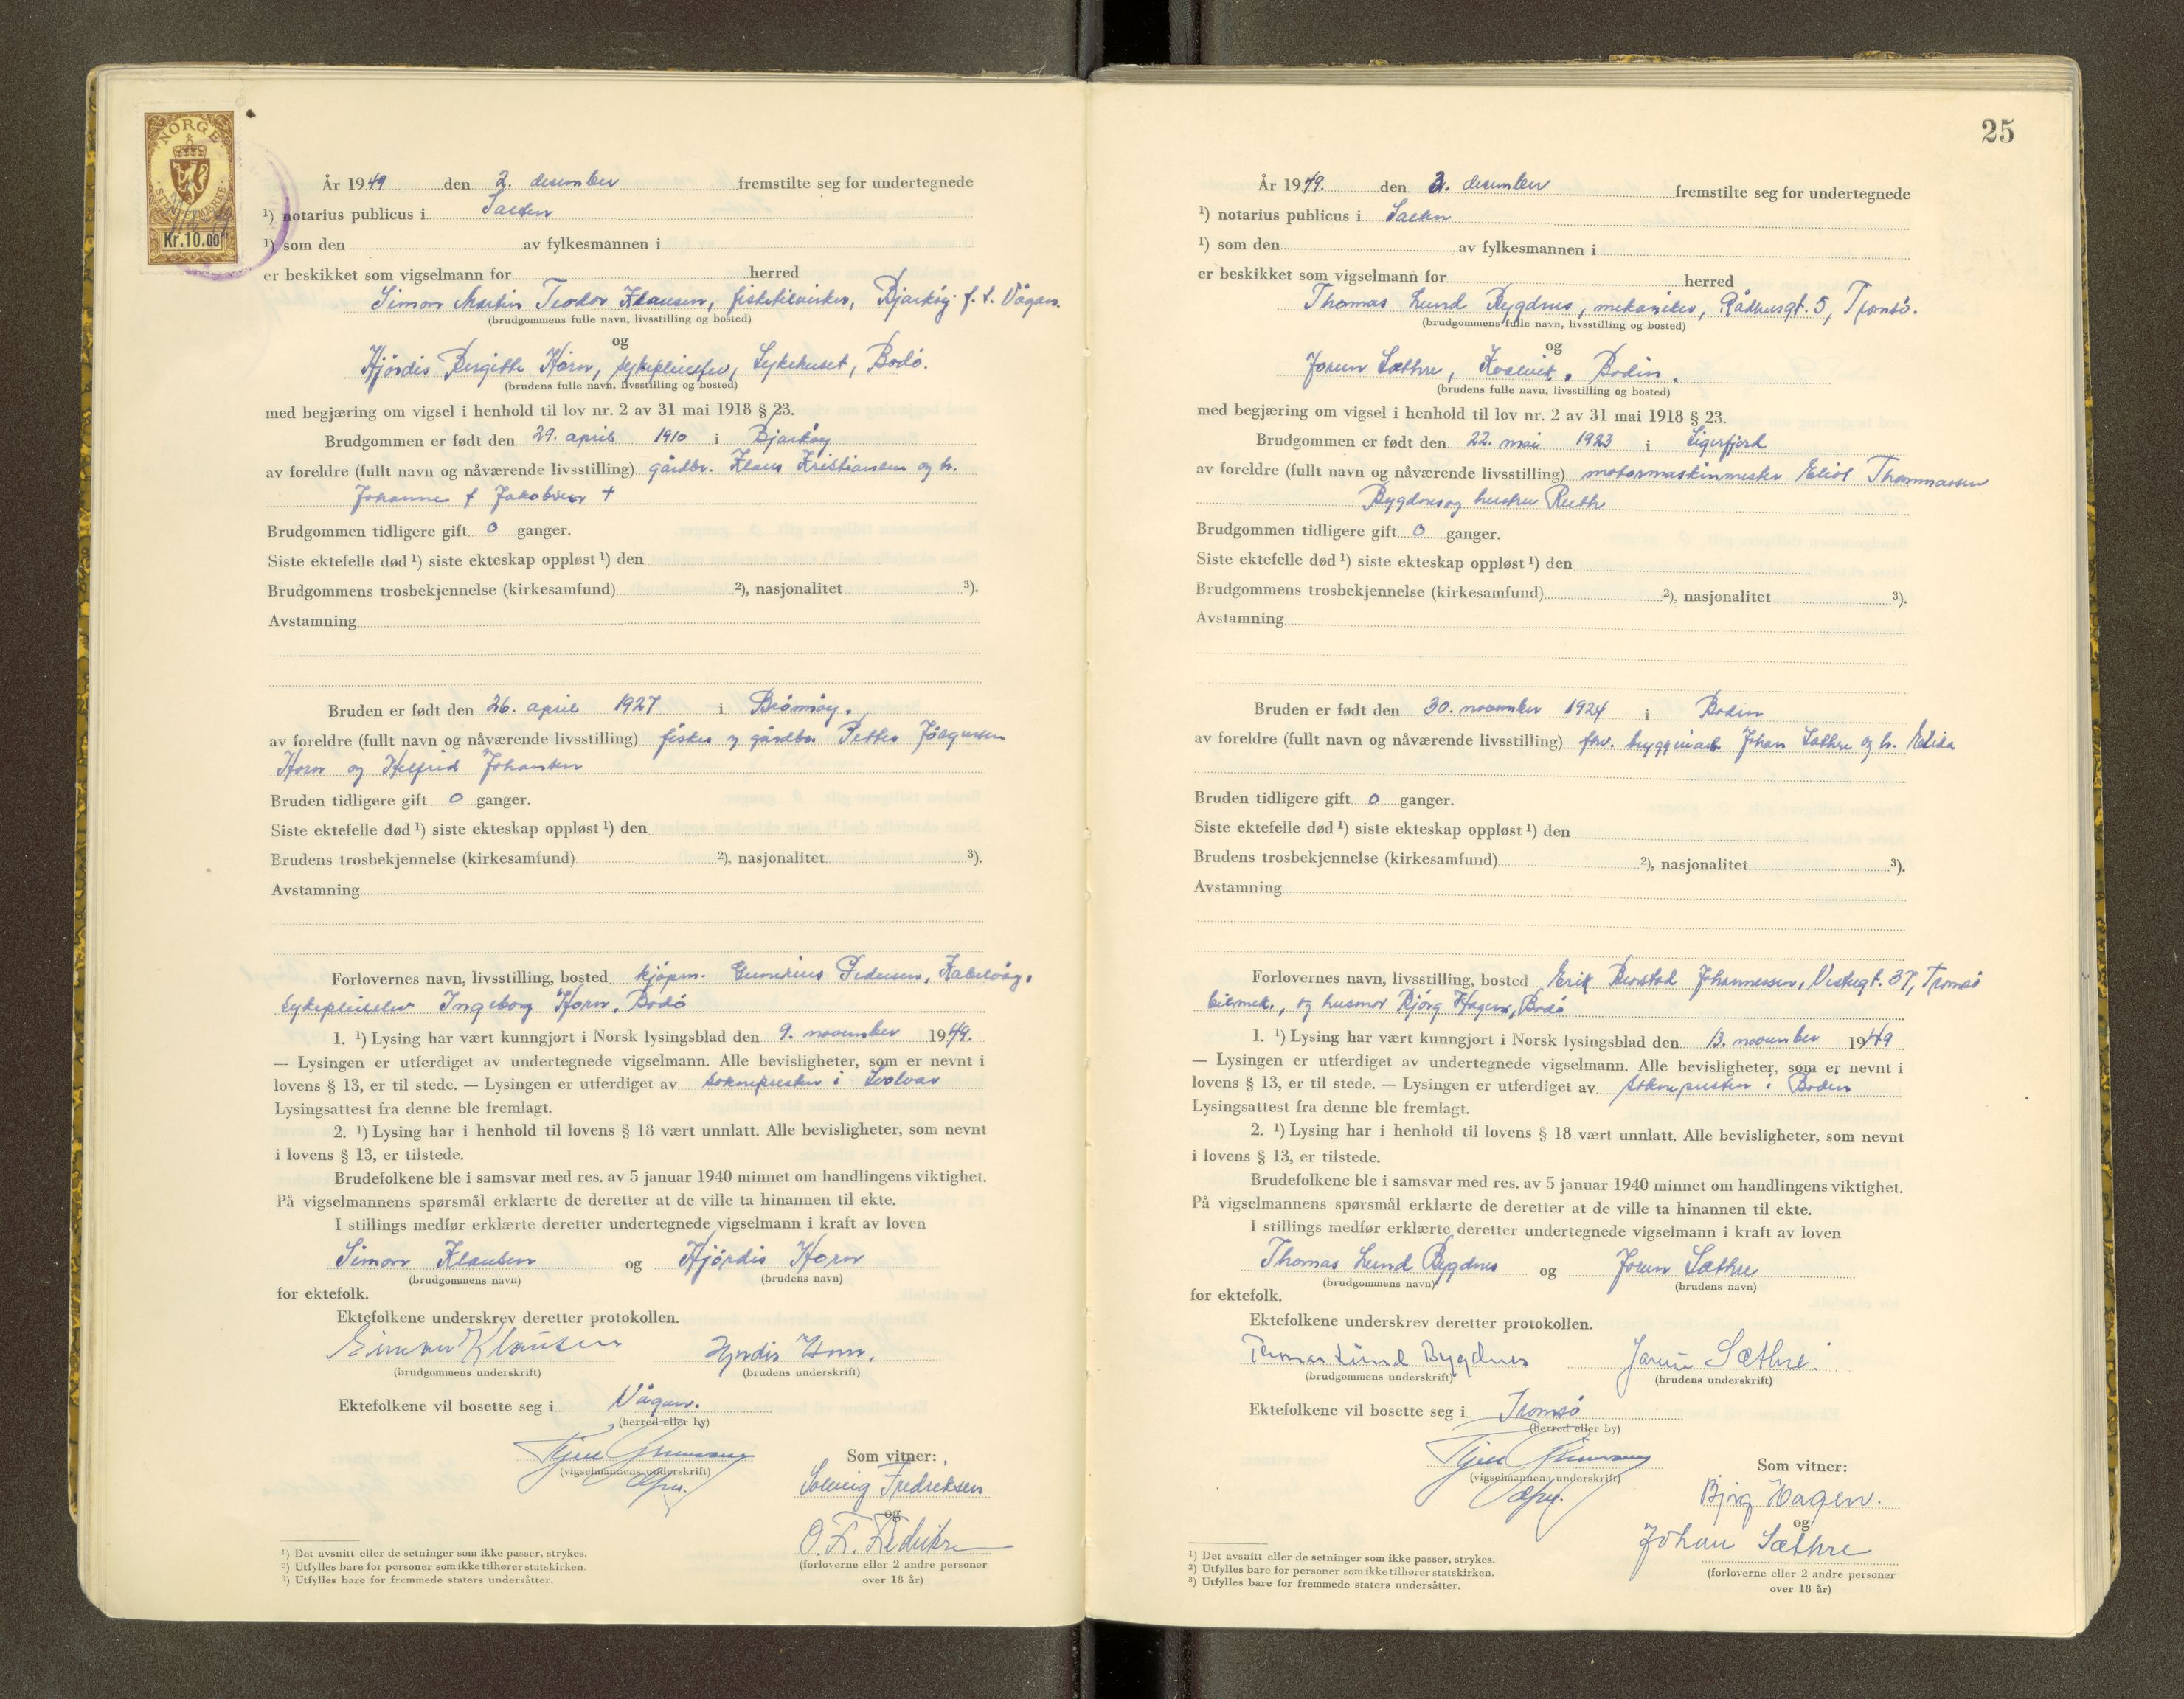 NORGE
STEMPELMERKE
Kr.10.00
År 1949 den 2. desember fremstilte seg for undertegnede
¹) notarius publicus i Salten
¹) som den av fylkesmannen i
er beskikket som vigselmann for herred
Simon Martin Teodor Klausen, fisketilvirker, Bjarkøy f. t. Vågan.
(brudgommens fulle navn, livsstilling og bosted)
og
Hjördis Birgitte Horn, sykepleielev, Sykehuset, Bodö.
(brudens fulle navn, livsstilling og bosted)
med begjæring om vigsel i henhold til lov nr. 2 av 31 mai 1918 § 23.
Brudgommen er født den 29. april 1910 i Bjarköy
av foreldre (fullt navn og nåværende livsstilling) gårdbr. Klaus Kristiansen og h.
Johanne f Jakobsen +
Brudgommen tidligere gift 0 ganger.
Siste ektefelle død ¹) siste ekteskap oppløst ¹) den
Brudgommens trosbekjennelse (kirkesamfund) ²), nasjonalitet ³).
Avstamning
Bruden er født den 26. april 1927 i Brönnöy.
av foreldre (fullt navn og nåværende livsstilling) fisker og gårdbr Petter Jörgensen
Horn og Helfrid Johansen
Bruden tidligere gift 0 ganger.
Siste ektefelle død ¹) siste ekteskap oppløst ¹) den
Brudens trosbekjennelse (kirkesamfund) ²), nasjonalitet ³).
Avstamning
Forlovernes navn, livsstilling, bosted kjöpm. Gunerius Pedersen, Kabelvåg,
Sykepleielev Ingeborg Horn, Bodö
1. ¹) Lysing har vært kunngjort i Norsk lysingsblad den 9. november 1949.
— Lysingen er utferdiget av undertegnede vigselmann. Alle bevisligheter, som er nevnt i
lovens § 13, er til stede. — Lysingen er utferdiget av sokneprester i Svolvær
Lysingsattest fra denne ble fremlagt.
2. ¹) Lysing har i henhold til lovens § 18 vært unnlatt. Alle bevisligheter, som nevnt
i lovens § 13, er tilstede.
Brudefolkene ble i samsvar med res. av 5 januar 1940 minnet om handlingens viktighet.
På vigselmannens spørsmål erklærte de deretter at de ville ta hinannen til ekte.
I stillings medfør erklærte deretter undertegnede vigselmann i kraft av loven
Simon Klausen og Hjördis Horn
(brudgommens navn) (brudens navn)
for ektefolk.
Ektefolkene underskrev deretter protokollen.
Simon Klausen Hjørdis Horn.
(brudgommens underskrift) (brudens underskrift)
Ektefolkene vil bosette seg i Vågan.
(herred eller by)
(vigselmannens underskrift)
Som vitner:
Solveig Fredriksen
og
(forloverne eller 2 andre personer
over 18 år)
¹) Det avsnitt eller de setninger som ikke passer, strykes.
²) Utfylles bare for personer som ikke tilhører statskirken.
³) Utfylles bare for fremmede staters undersåtter.
25
År 1949. den 2. desember fremstilte seg for undertegnede
¹) notarius publicus i Salten
¹) som den av fylkesmannen i
er beskikket som vigselmann for herred
Thomas Lund Bygdnes, mekaniker, Rådhusgt. 5, Tromsö.
(brudgommens fulle navn, livsstilling og bosted)
og
Jorun Sæthre, Kvalvik, Bodin.
(brudens fulle navn, livsstilling og bosted)
med begjæring om vigsel i henhold til lov nr. 2 av 31 mai 1918 § 23.
Brudgommen er født den 22. mai 1923 i Sigerfjord
av foreldre (fullt navn og nåværende livsstilling) motormaskinmester Eliot Thommassen
Bygdnes og hustru Ruth
Brudgommen tidligere gift 0 ganger.
Siste ektefelle død ¹) siste ekteskap oppløst ¹) den
Brudgommens trosbekjennelse (kirkesamfund) ²), nasjonalitet ³).
Avstamning
Bruden er født den 30. november 1924 i Bodin
av foreldre (fullt navn og nåværende livsstilling) fhv. bryggeriarb Johan Sæthre og h. Elida
Bruden tidligere gift 0 ganger.
Siste ektefelle død ¹) siste ekteskap oppløst ¹) den
Brudens trosbekjennelse (kirkesamfund) ²), nasjonalitet ³).
Avstamning
Forlovernes navn, livsstilling, bosted Erik Johannessen, Vestregt. 37, Tromsö
bilmek., og husmor Björg Hagen, Bodö
1. ¹) Lysing har vært kunngjort i Norsk lysingsblad den 13. november 1949
— Lysingen er utferdiget av undertegnede vigselmann. Alle bevisligheter, som er nevnt i
lovens § 13, er til stede. — Lysingen er utferdiget av soknepresten i Bodin
Lysingsattest fra denne ble fremlagt.
2. ¹) Lysing har i henhold til lovens § 18 vært unnlatt. Alle bevisligheter, som nevnt
i lovens § 13, er tilstede.
Brudefolkene ble i samsvar med res. av 5 januar 1940 minnet om handlingens viktighet.
På vigselmannens spørsmål erklærte de deretter at de ville ta hinannen til ekte.
I stillings medfør erklærte deretter undertegnede vigselmann i kraft av loven
Thomas Lund Bygdnes og Jorun Sæthre
(brudgommens navn) (brudens navn)
for ektefolk.
Ektefolkene underskrev deretter protokollen.
Thomas Lund Bygdnes Jorun Sæthre.
(brudgommens underskrift) (brudens underskrift)
Ektefolkene vil bosette seg i Tromsö
(herred eller by)
(vigselmannens underskrift)
Som vitner:
Bjørg Hagen.
og
Johan Sæthre
(forloverne eller 2 andre personer
over 18 år)
¹) Det avsnitt eller de setninger som ikke passer, strykes.
²) Utfylles bare for personer som ikke tilhører statskirken.
³) Utfylles bare for fremmede staters undersåtter.